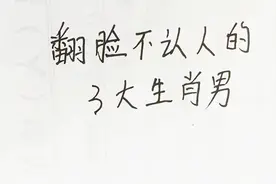 翻脸不认人的
3大生肖男